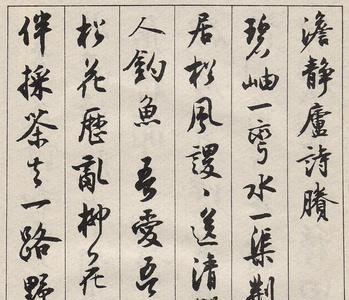 澹静廬詩賸
碧岫一彎水一渠荆
居松風謖〻送清
人釣魚 吾愛吾
松花歷亂柳花
伴採茶去一路野